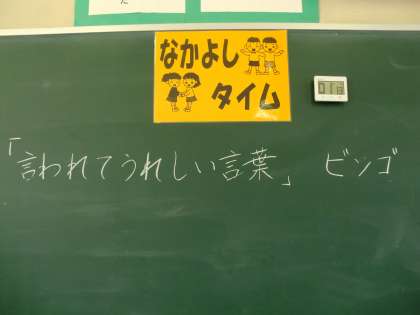 なかよし
タイム
「言われてうれしい言葉」 ビンゴ